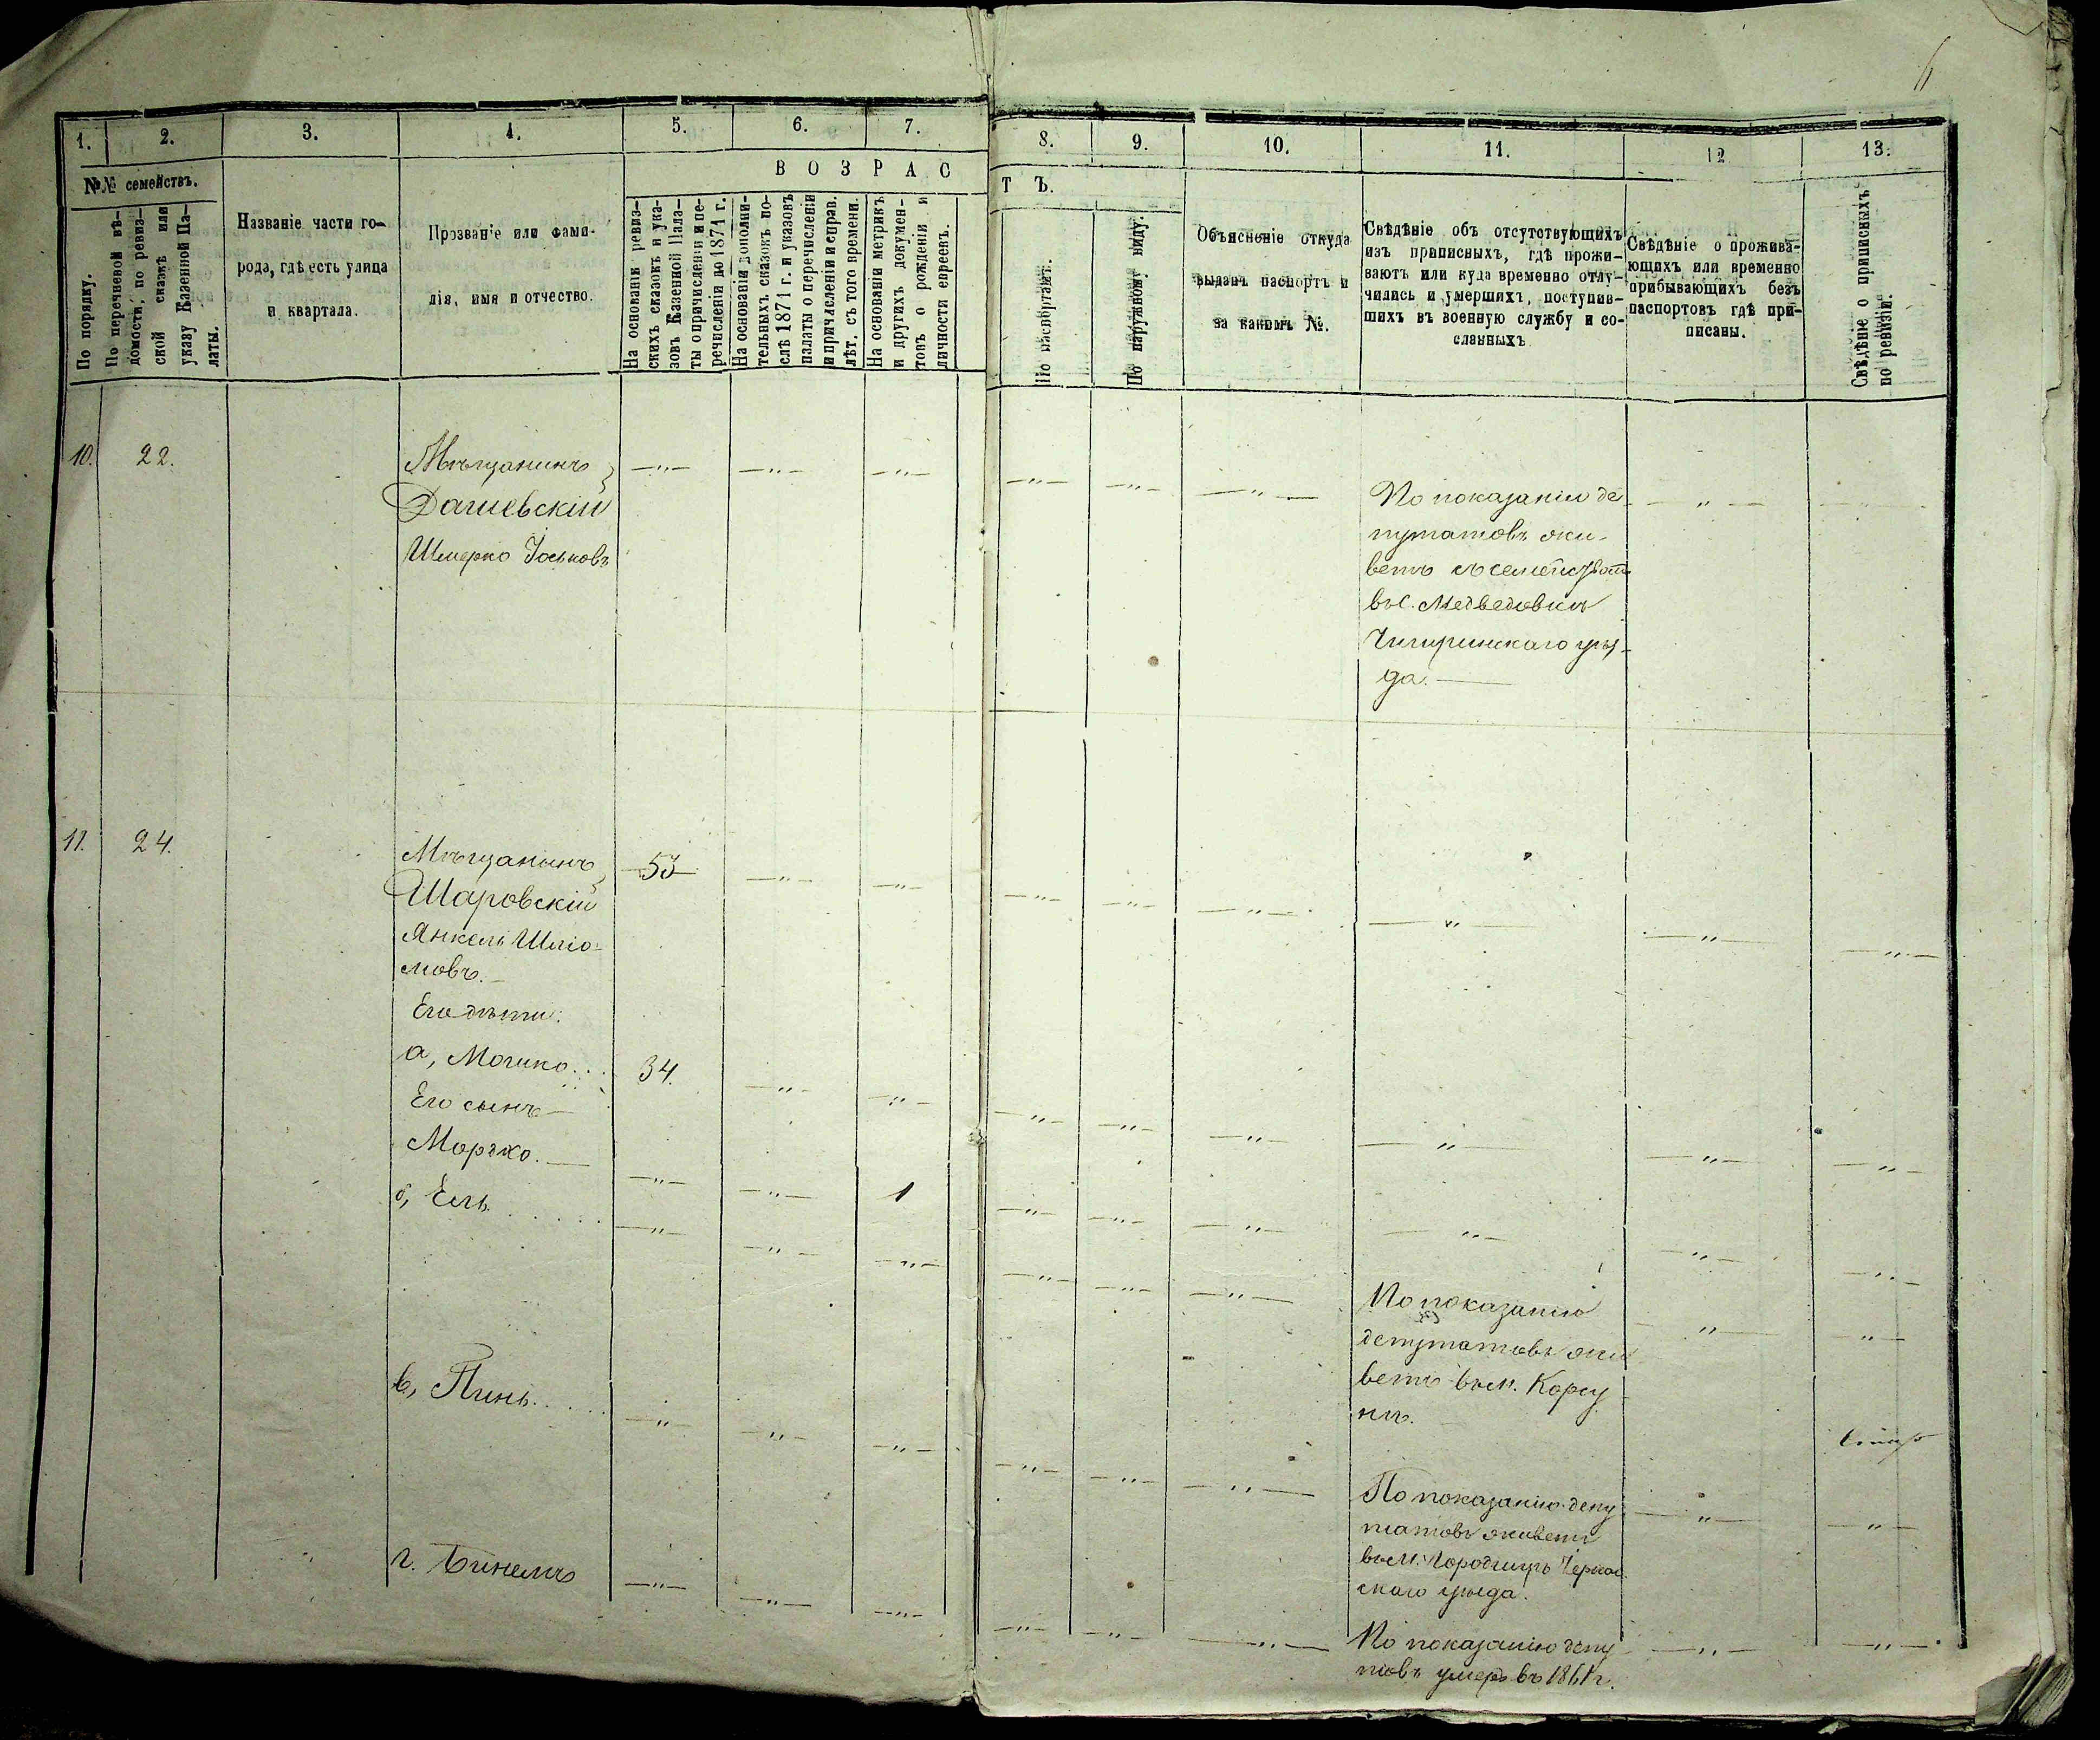 6
1.
2.
3.
4.
5.
6.
7.
8.
9.
10.
11.
12
13.
№№ семействъ.
ВОЗРАС
ТЪ.
По порядку.
По перечневой вѣ-
домости, по ревиз-
ской сказкѣ или
указу Казенной Па-
латы.
Названіе части го-
рода, гдѣ есть улица
и квартала.
Прозваніе или фами-
лія, имя и отчество.
На основаніи ревиз-
скихъ сказокъ и ука-
зовъ Казенной Пала-
ты о причисленіи и пе-
речисленіи до 1871 г.
На основаніи дополни-
тельныхъ сказокъ по-
слѣ 1871 г. и указовъ
палаты о перечисленіи
и причисленіи и справ.
лѣт. съ того времени.
На основаніи метрикъ
и другихъ докумен-
товъ о рожденіи и
личности евреевъ.
По паспортамъ.
По наружному виду.
Объясненіе откуда
выданъ паспортъ и
за какимъ №.
Свѣдѣніе объ отсутствующихъ
изъ приписныхъ, гдѣ прожи-
ваютъ или куда временно отлу-
чились и умершихъ, поступив-
шихъ въ военную службу и со-
сланныхъ
Свѣдѣніе о прожива-
ющихъ или временно
прибывающихъ безъ
паспортовъ гдѣ при-
писаны.
Свѣдѣніе о приписныхъ
по ревизіи.
10.
22.
Мѣщанинъ
Дашевскій
Шмерко Іоськовъ
—"— —"— —"— —"— —"— —"—
По показанію де-
путатовъ жи-
ветъ съ семействомъ
въ с. Медведовкѣ
Чигиринскаго уѣз-
да.—
—"—
11.
24.
Мѣщанинъ
Шаровскій
Янкель Шліо-
мовъ.—
53
—"— —"— —"— —"— —"— —"— —"— —"—
Его дѣти:
а, Мошко...
34.
—"— —"— —"— —"— —"— —"— —"— —"—
Его сынъ—
Моргко.—
—"— —"— 1 —"— —"— —"— —"— —"— —"—
б, Ель.....
—"— —"— —"— —"— —"— —"—
По показанію
депутатовъ жи
ветъ въ м. Корсу-
нѣ.
—"— —"—
в, Пинь.....
—"— —"— —"— —"— —"— —"—
По показанію депу
татовъ живетъ
въ м. Городищѣ Черкас
скаго уѣзда.
—"— —"—
г. Бинемъ
—"— —"— —"— —"— —"— —"—
По показанію депу
товъ умеръ въ 1861 г.
—"— —"—